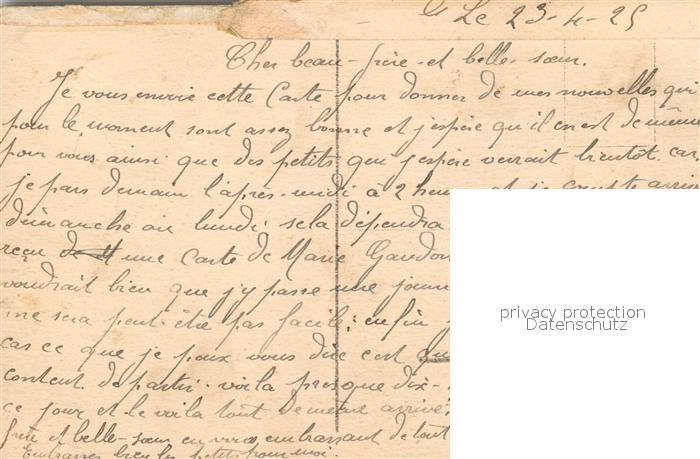 Le 23-4-25
Cher beau-frère et belle-sœur.
Je vous envoie cette Carte pour donner de mes nouvelles qui
pour le moment sont assez bonne et j'espère qu'il en est de même
pour vous ainsi que des petits que j'espère verrait bientot. car
je pars demain l'après-midi à 2 heu et je compte arriv
dimanche ou lundi; sela dépendra
reçu une carte de Marie Gaudon
voudrait bien que j'y passe une journ
me sera peut-être pas facile; enfin
car ce que je peux vous dire c'est
content de partir. voila presque dix-
ce jour et le voila tout de même arrivé;
frère et belle-sœur en vous embrassant de tout
Embrasser bien les petits pour moi.
privacy protection
Datenschutz